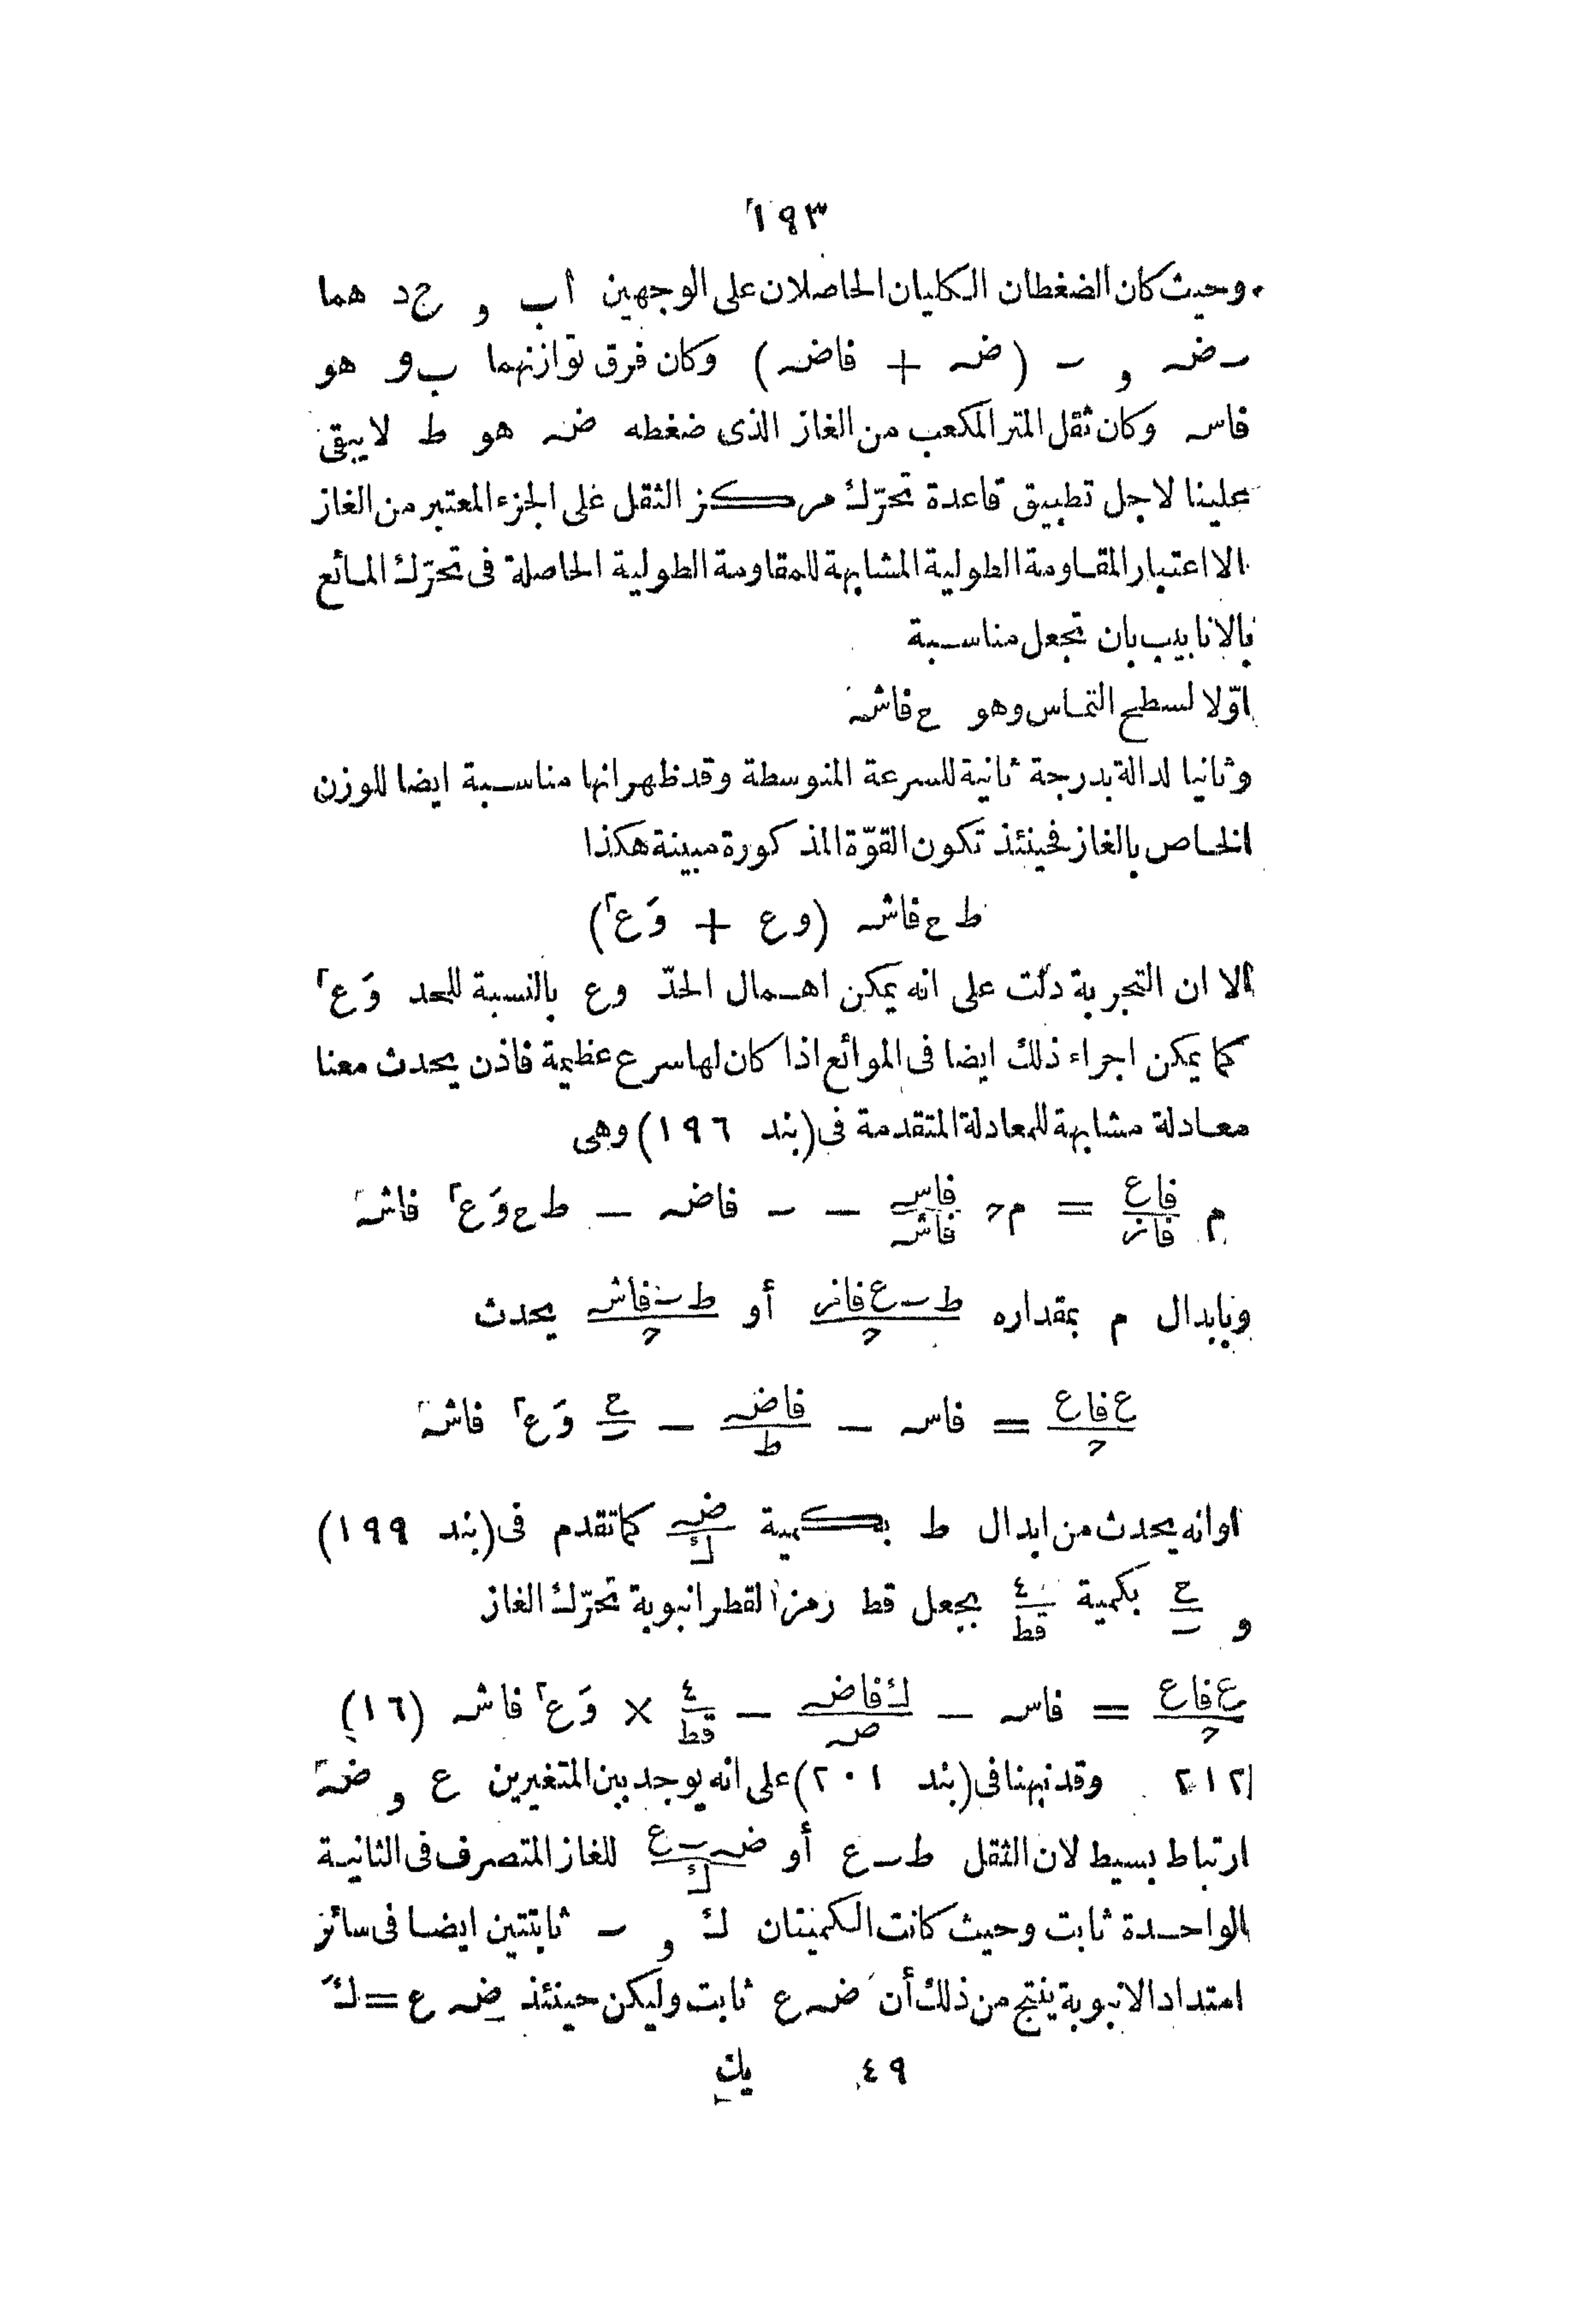 ١٩٣
وحيث كان الضغطان الكليان الحاصلان على الوجهين أب و ج د هما
ٮـ ضہ و ٮـ (ضہ + فاضہ) وكان فرق توازنهما ب و هو
فاسہ وكان ثقل المتر المكعب من الغاز الذى ضغطه ضہ هو ط لا يبقى
علينا لاجل تطبيق قاعدة تحرّك مركز الثقل على الجزء المعتبر من الغاز
الا اعتبار المقاومة الطولية المشابهة للمقاومة الطولية الحاصلة فى تحرّك المائع
بالانابيب بان تجعل مناسبة
اوّلا لسطح التماس وهو ح فاشہ
وثانيا لدالة بدرجة ثانية للسرعة المتوسطة وقد ظهر انها مناسبة ايضا للوزن
الخاص بالغاز فحينئذ تكون القوّة المذكورة مبينة هكذا
ط ح فاشہ (و ع + وَ ع٢)
الا ان التجربة دلت على انه يمكن اهمال الحدّ و ع بالنسبة للحد وَ ع٢
كما يمكن اجراء ذلك ايضا فى الموائع اذا كان لها سرع عظيمة فاذن يحدث معنا
معادلة مشابهة للمعادلة المتقدمة فى (بند ١٩٦) وهى
م فاع/فاز = م ﺣ فاسہ/فاشہ − ٮـ فاضہ − ط ح وَ ع٢ فاشہ
وبابدال م بمقداره ط ٮـ ع فاز/ﺣ أو ط ٮـ فاشہ/ﺣ يحدث
ع فاع/ﺣ = فاسہ − فاضہ/ط − ح/ٮـ وَ ع٢ فاشہ
وانه يحدث من ابدال ط بكمية ضہ/ك كما تقدم فى (بند ١٩٩)
و ح/ٮـ بكمية ٤/قط بجعل قط رمزا لقطر انبوبة تحرّك الغاز
ع فاع/ﺣ = فاسہ − ك فاضہ/ضہ − ٤/قط × وَ ع٢ فاشہ (١٦)
٢١٢ وقد نبهنا فى (بند ٢٠١) على انه يوجد بين المتغيرين ع و ضہ
ارتباط بسيط لان الثقل ط ٮـ ع أو ضہ ٮـ ع/ك للغاز المتصرف فى الثانية
الواحدة ثابت وحيث كانت الكميتان ك و ٮـ ثابتتين ايضا فى سائر
امتداد الانبوبة ينتج من ذلك أن ضہ ع ثابت وليكن حينئذ ضہ ع = كَ
٤٩ يك